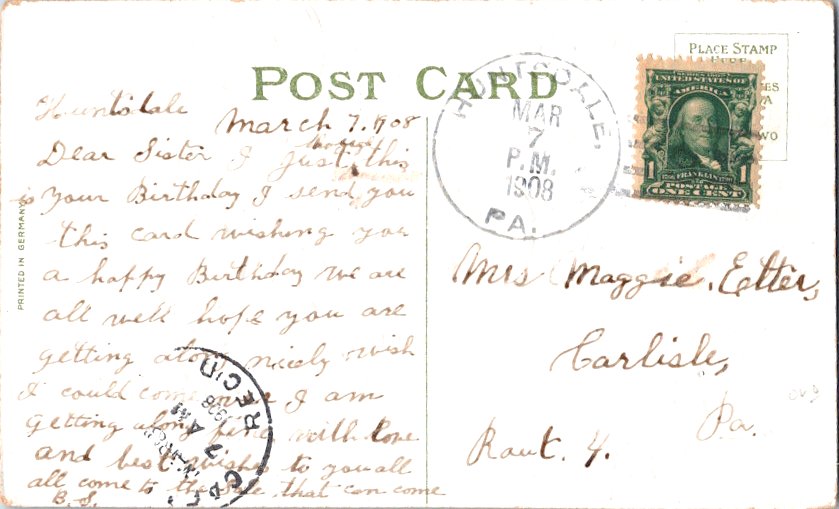 POST CARD
PLACE STAMP
HERE
WO
PRINTED IN GERMANY
Huntsdale
March 7, 1908
Dear Sister I Just this
is your Birthday I send you
this card wishing you
a happy Birthday we are
all well hope you are
getting along nicely wish
I could come over I am
Getting along fine with love
and best wishes to you all
all come to the sale that can come
B. S.
HUNTSDALE,
MAR
7
P.M.
1908
PA.
SERIES 1902
UNITED STATES OF
AMERICA
1 FRANKLIN 1
POSTAGE
ONE CENT
Mrs Maggie Etter,
Carlisle,
Pa.
Rout. 4.
REC'D
7 AM
1908